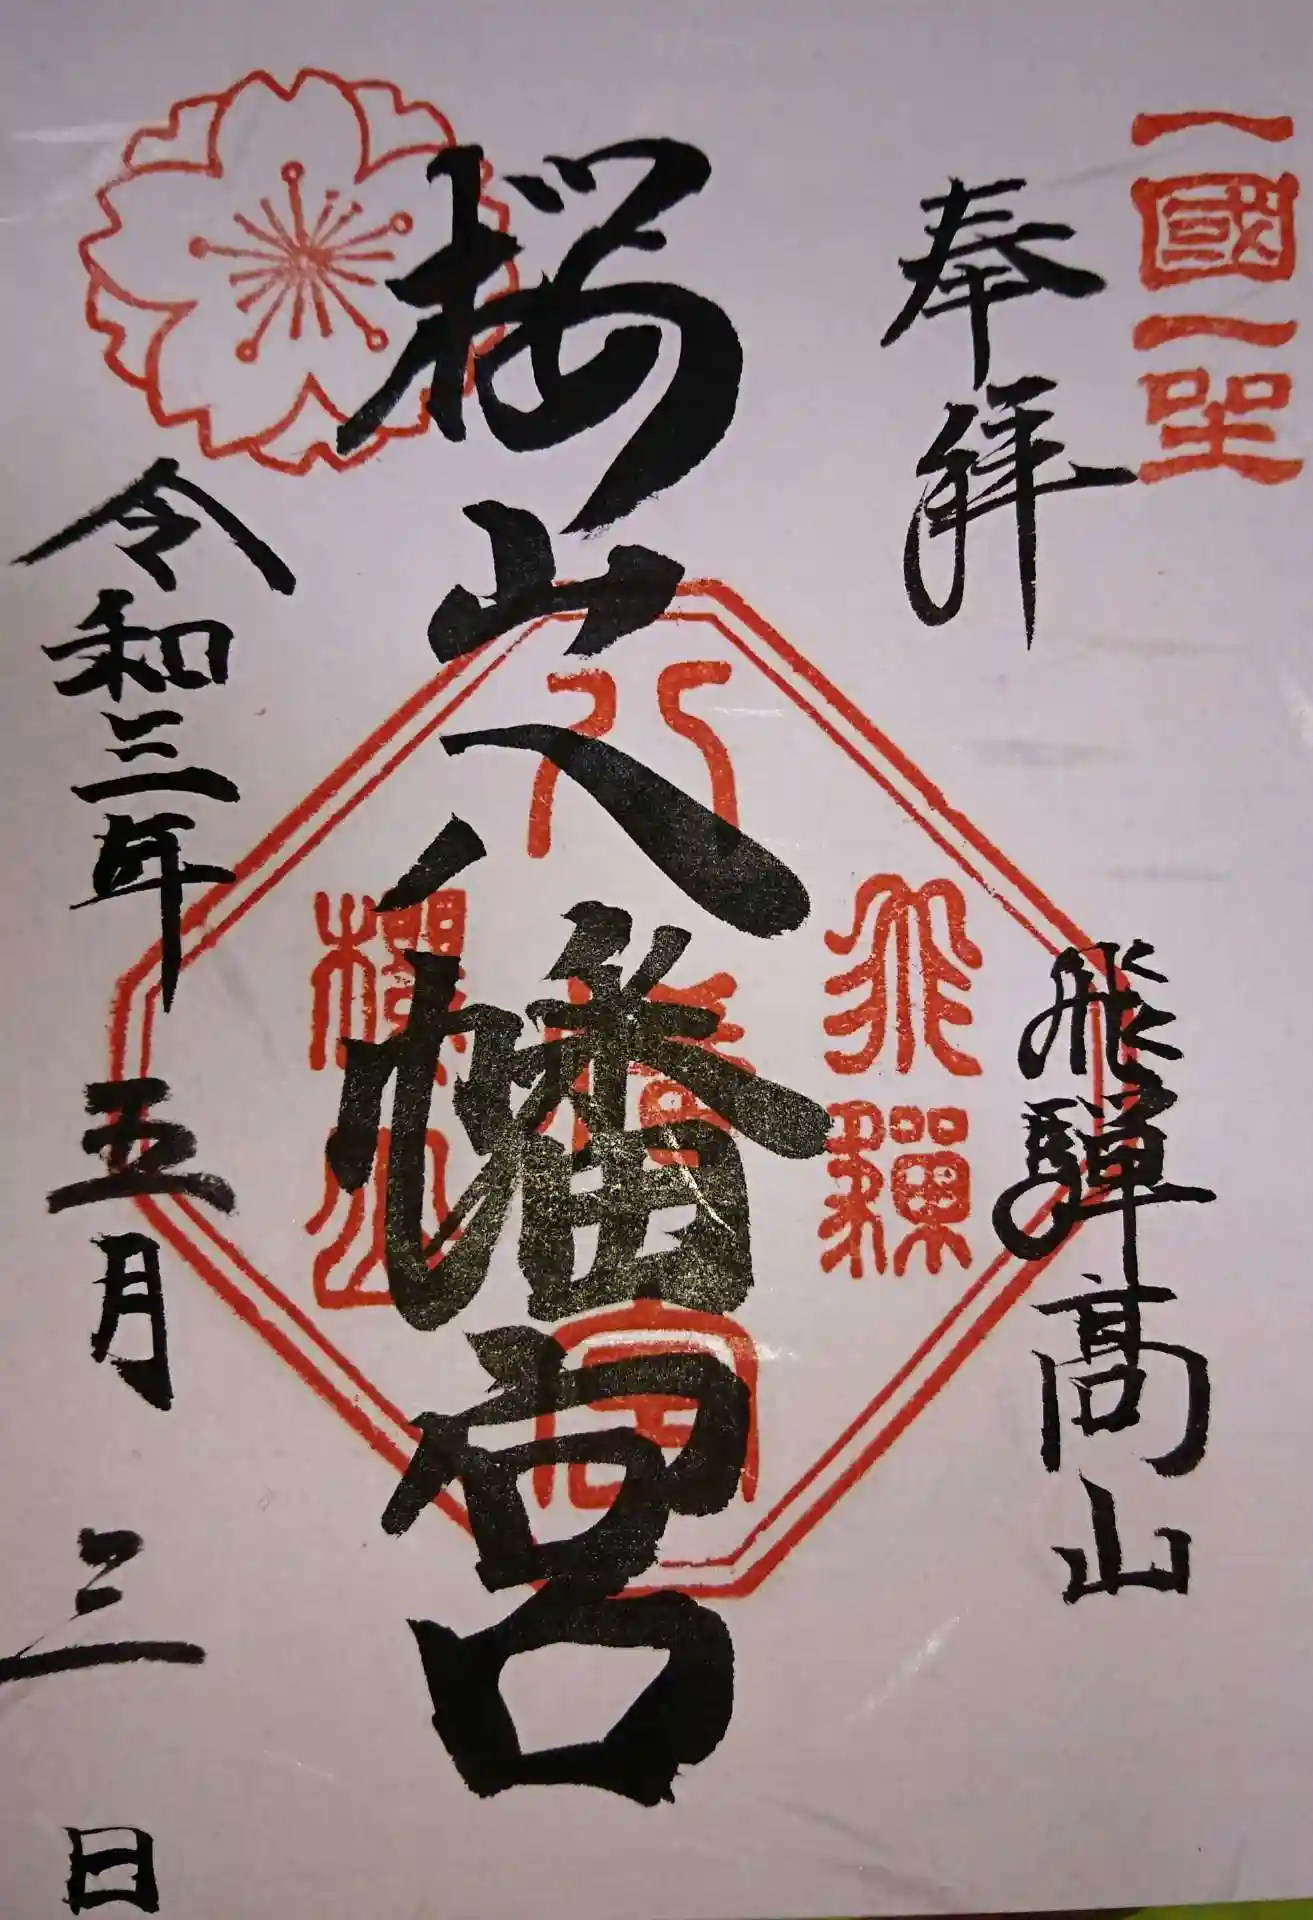 一國一社
奉拝
飛騨高山
桜山八幡宮
飛騨
八幡宮
櫻山
令和三年
五月
三日